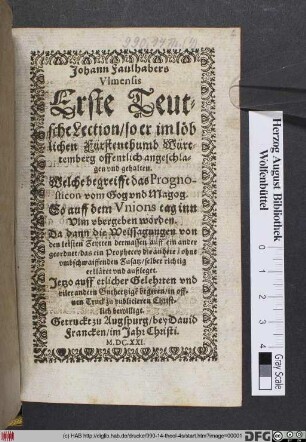 Johann Faulhabers
Vlmensis
Erste Teut-
sche Lection / so er im löb
lichen Fürstenthumb Würt-
temberg offentlich angeschla-
gen vnd gehalten.
Welche begreifft das Progno-
sticon vom Gog vnd Magog.
So auff dem Vnions tag inn
Vlm vbergeben worden.
Da dann die Weissagungen von
den letsten Zeytten dermassen auff ein ander
geordnet / das ein Prophecey die ander / ohne
vmbschwaiffenden Zusatz / selber richtig
erkläret vnd außleget.
Jetzo auff etlicher Gelehrten vnd
viler andern Guthertzige begeren / in off-
nen Truck zu publicieren Christ-
lich bewilligt.
Getruckt zu Augspurg / bey David
Francken / im Jahr Christi.
M.DC.XXI.
Herzog August Bibliothek
Wolfenbüttel
Gray Scale
(c) HAB http://diglib.hab.de/drucke/
DFG